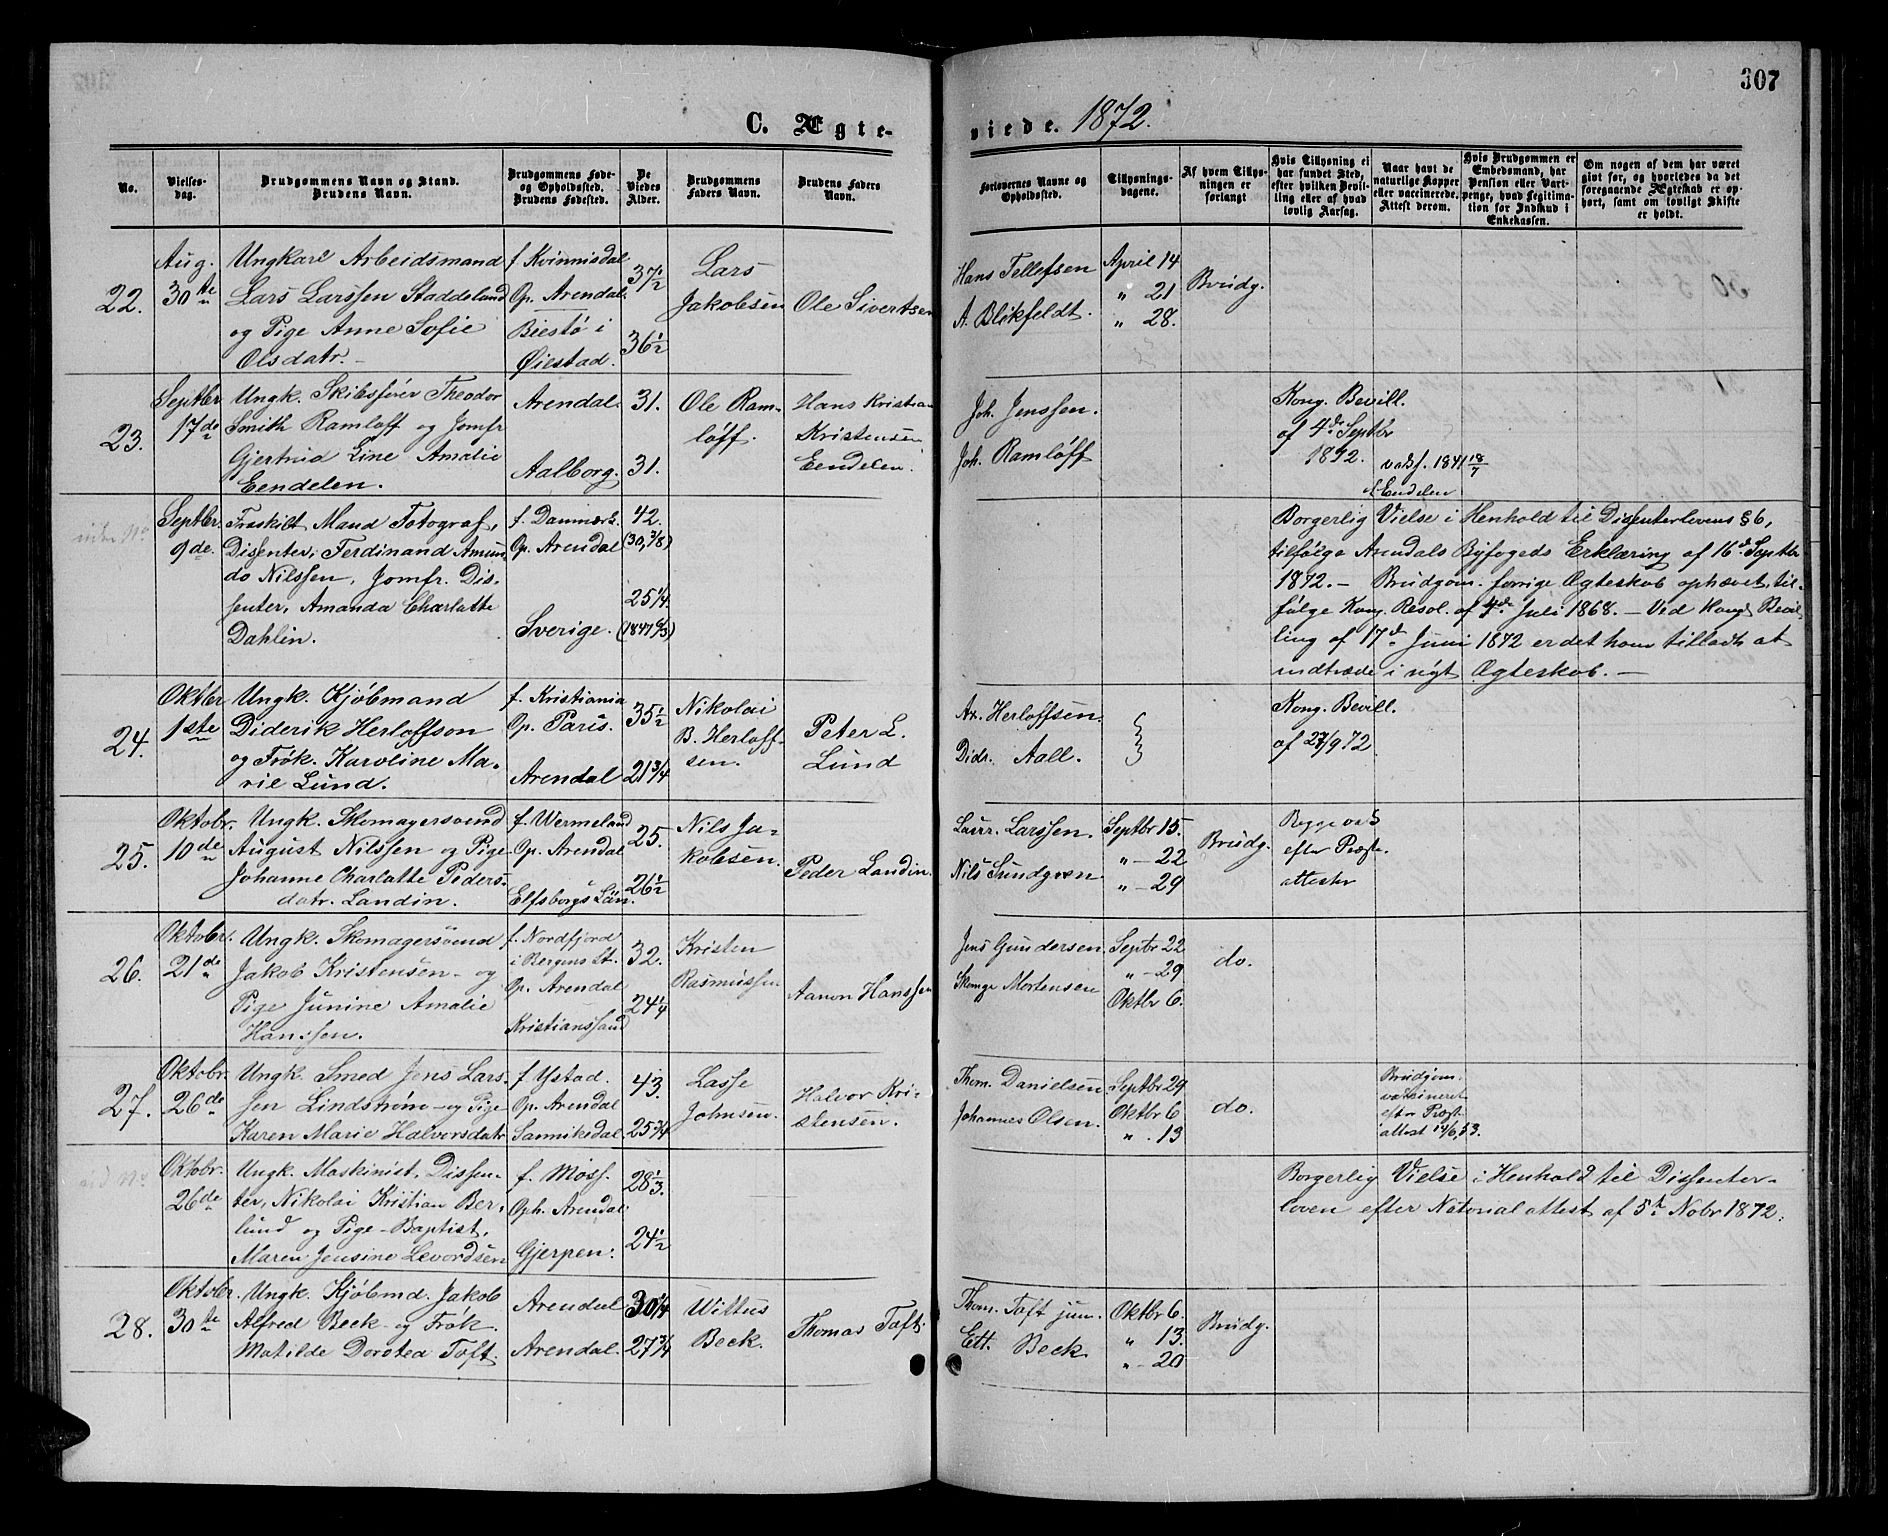 307
C. Ægteviede. 1872.
No.
Vielses-
dag.
Brudgommens Navn og Stand.
Brudens Navn.
Brudgommens Føde-
og Opholdssted.
Brudens Fødested.
De
Viedes
Alder.
Brudgommens
Faders Navn.
Brudens Faders
Navn.
Forlovernes Navne og
Opholdssted.
Tillysnings-
dagene.
Af hvem Tillys-
ningen er
forlangt
Hvis Tillysning ei
har fundet Sted,
efter hvilken Bevil-
ling eller af hvad
lovlig Aarsag.
Naar havt de
naturlige Kopper
eller vaccinerede.
Attest derom.
Hvis Brudgommen er
Embedsmand, har
Pension eller Vart-
penge, hvad Legitima-
tion for Indskud i
Enkekassen.
Om nogen af dem har været
givt før, og hvorledes da det
foregaaende Ægteskab er op-
hørt, samt om lovligt Skifte
er holdt.
22.
Aug.
30te
Ungkarl Arbeidsmand
Lars Larssen Staddeland
og Pige Anne Sofie
Olsdatr.
f. Kvinnisdal
Op. Arendal.
Biestø i
Øiestad.
37 1/2
36 1/2
Lars
Jakobsen
Ole Sivertsen
Hans Tellefsen
A. Blikfeldt.
April 14
" 21
" 28.
Brudg.
23.
Septbr
17de
Ungk. Skibsfører Theodor
Smith Ramløff og Jomfr
Gjertrud Line Amalie
Eendelen.
Arendal.
Aalborg.
31.
31.
Ole Ram-
løff.
Hans Kristian
Kristensen
Eendelen.
Joh. Jenssen.
Joh. Ramløff
Kong. Bevill.
af 4de Septbr
1872.
vaks. 1841 18/7
f. Eendelen
Septbr.
9de.
Fraskilt Mand Fotograf,
Dissenter, Ferdinand Amun-
do Nilssen, Jomfr. Dis-
senter, Amanda Charlotte
Dahlin.
f. Danmark.
Op. Arendal
Sverige.
42.
(30, 3/8)
25 1/4
(1847 6/5)
Borgerlig Vielse i Henhold til Dissenterlovens § 6,
tilfølge Arendals Byfogeds Erklæring af 16de Septbr
1872. – Brudgom. forrige Ægteskab ophævet til-
følge Kong. Resol. af 4de Juli 1868. – Ved Kongl Bevil-
ling af 17d Juni 1872 er det ham tilladt at
indtræde i nyt Ægteskab. –
24.
Oktbr
1ste
Ungk. Kjøbmand
Diderik Herloffson
og Frøk. Karoline Ma-
rie Lund.
f. Kristiania
Op. Paris.
Arendal
35 1/2
21 3/4
Nikolai
B. Herloff-
sen.
Peter L.
Lund
Ax. Herloffsen.
Didr. Aall.
Kong. Bevill.
af 27/9 72
25.
Oktobr.
10de
Ungk. Skomagersvend
August Nilssen og Pige
Johanne Charlotte Peders-
datr. Landin.
f. Wermeland
Op. Arendal
Elfsborgs Län.
25.
26 1/2
Nils Ja-
kobsen.
Peder Landin.
Laur. Larssen.
Nils Sundgren.
Septbr 15.
" – 22
" – 29
Brudg.
Begge vac
efter Præste-
attester
26.
Oktobr.
21de
Ungk. Skomagersvend
Jakob Kristensen – og
Pige Junine Amalie
Hanssen.
f. Nordfjord
i Bergens St.
Op. Arendal
Kristianssand
32.
24 1/4
Kristen
Rasmussen
Aanon Hanssen
Jens Gundersen
Skomgr Mortensen
Septbr 22
" – 29
Oktbr 6.
do.
27.
Oktobr.
26de
Ungk. Smed Jens Lars-
sen Lindstrøm – og Pige
Karen Marie Halvorsdatr
f. Ystad.
Op. Arendal
Sannikedal
43.
25 3/4
Lasse
Johnsen.
Halvor Kri-
stensen.
Thom. Danielsen
Johannes Olsen.
Septbr 29
Oktbr 6
" . 13
do.
Brudgom.
vaccineret
efter Præst-
attest 14/6, 53.
Oktobr.
26de
Ungk. Maskinist, Dissen-
ter, Nikolai Kristian Ber-
lund og Pige – Baptist,
Maren Jensine Levordsen
f. Moss.
Oph. Arendal
Gjerpen.
28 1/3.
24 1/2
Borgerlig Vielse i Henhold til Dissenter-
loven efter Notorialattest af 5te Nobr 1872.
28.
Oktobr.
30te
Ungk. Kjøbmd. Jakob
Alfred Beck og Frøk.
Matilde Dorotea Toft
Arendal
Arendal.
30 1/4
27 3/4
Wittus
Beck.
Thomas Toft.
Thom. Toft jun.
Ett. Beck
Oktbr 6.
" 13.
" – 20
Brudg.